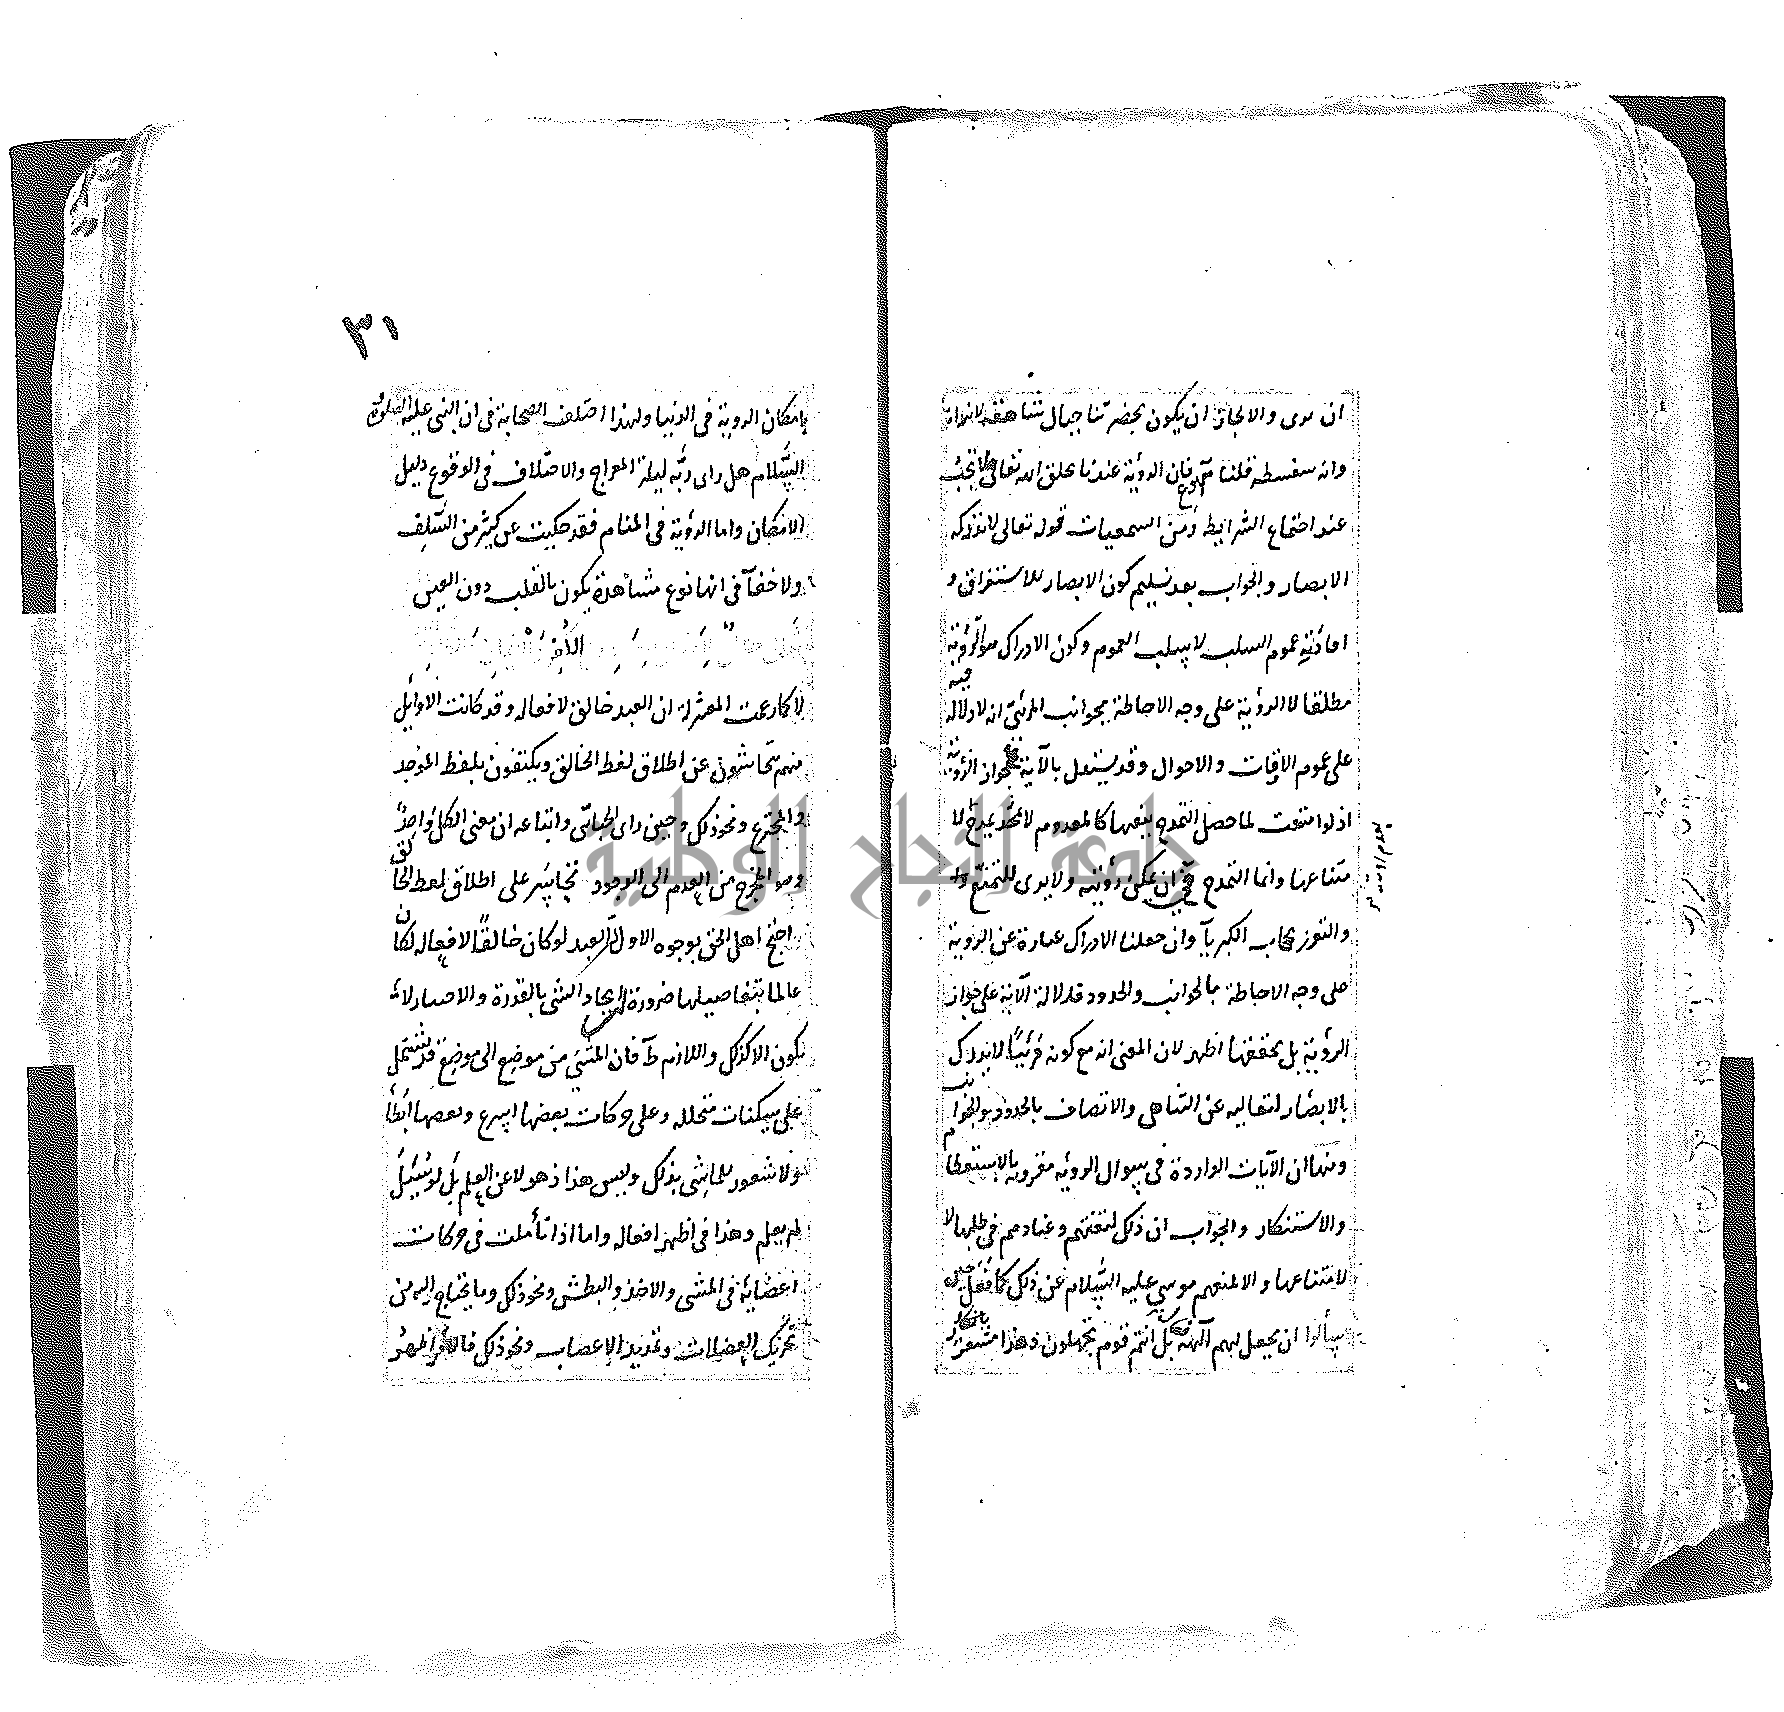 ان يرى والا لجاز ان يكون بحضرتنا جبال شاهقة لا نراها
وانه سفسطة قلنا فان الرؤية عندنا بخلق الله تعالى لا تجب
عند اجتماع الشرايط ومن السمعيات قوله تعالى لا تدركه
الابصار والجواب بعد تسليم كون الابصار للاستغراق و
افادته عموم السلب لا سلب العموم وكون الادراك هو الرؤية
مطلقا لا الرؤية على وجه الاحاطة بجوانب المرئي انه لا دلالة فيه
على عموم الاوقات والاحوال وقد يستدل بالآية على جواز الرؤية
اذ لو امتنعت لما حصل التمدح بنفيها كالمعدوم لا يمدح بعدم رؤيته لا
متناعها وانما التمدح في ان يمكن رؤيته ولا يرى للتمنع
والتعزز بحجاب الكبريآ وان جعلنا الادراك عبارة عن الرؤية
على وجه الاحاطة بالجوانب والحدود فدلالة الآية على جواز
الرؤية بل تحققها اظهر لان المعنى انه مع كونه مرئيا لا يدرك
بالابصار لتعاليه عن التناهي والاتصاف بالحدود والجوانب
ومنها ان الآيات الواردة في سوال الرؤية مقرونة بالاستعظام
والاستنكار والجواب ان ذلك لتعنتهم وعنادهم في طلبها لا
لامتناعها والا لمنعهم موسى عليه السلام عن ذلك كما فعل حين
سألوا ان يجعل لهم آلهة فقال بل انتم قوم تجهلون وهذا مشعر
٣١
بامكان الرؤية في الدنيا ولهذا اختلف الصحابة في ان النبي عليه الصلوة
السلام هل راى ربه ليلة المعراج والاختلاف في الوقوع دليل
الامكان واما الرؤية في المنام فقد حكيت عن كثير من السلف
ولا خفآ في انها نوع مشاهدة يكون بالقلب دون العين
لا كما زعمت المعتزلة ان العبد خالق لافعاله وقد كانت الاوايل
منهم يتحاشون عن اطلاق لفظ الخالق ويكتفون بلفظ الموجد
والمخترع ونحو ذلك وحين راى الجبائي واتباعه ان معنى الكل واحد
وهو المخرج من العدم الى الوجود تجاسر على اطلاق لفظ الخالق
احتج اهل الحق بوجوه الاول ان العبد لو كان خالقا لافعاله لكان
عالما بتفاصيلها ضرورة ان ايجاد الشي بالقدرة والاختيار لا
يكون الا كذلك واللازم بط فان المشي من موضع الى موضع قد يشتمل
على سكنات متخللة وعلى حركات بعضها اسرع وبعضها ابطأ
ولا شعور للماشي بذلك وليس هذا ذهولا عن العلم بل لو سئل
لم يعلم وهذا في اظهر افعاله واما اذا تأملت في حركات
اعضائه في المشي والاخذ والبطش ونحو ذلك وما يحتاج اليه من
تحريك العضلات وتمديد الاعصاب ونحو ذلك فالامر اظهر